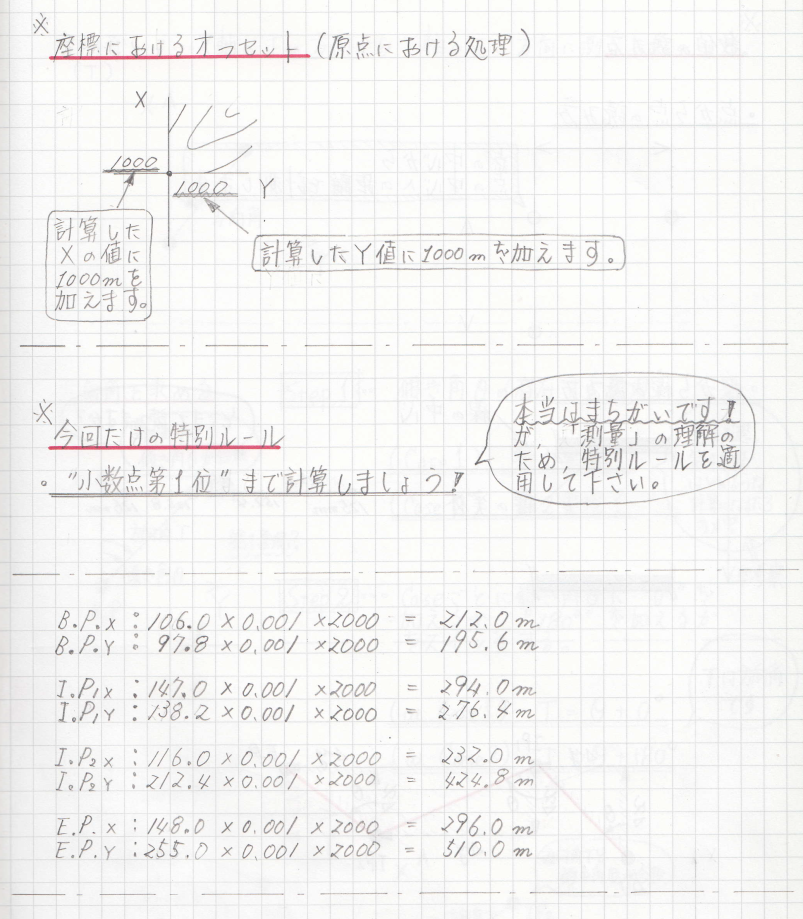 ※
座標におけるオフセット(原点における処理)
X
1000
1000 Y
計算した
Xの値に
1000mを
加えます。
計算したY値に1000mを加えます。
※
今回だけの特別ルール
。"小数点第1位"まで計算しましょう!
本当はまちがいです!
が,「測量」の理解の
ため,特別ルールを適
用して下さい。
B.P.X : 106.0 × 0.001 ×2000 = 212.0 m
B.P.Y : 97.8 × 0.001 ×2000 = 195.6 m
I.P1X : 147.0 × 0.001 ×2000 = 294.0 m
I.P1Y : 138.2 × 0.001 ×2000 = 276.4 m
I.P2X : 116.0 × 0.001 ×2000 = 232.0 m
I.P2Y : 212.4 × 0.001 ×2000 = 424.8 m
E.P.X : 148.0 × 0.001 ×2000 = 296.0 m
E.P.Y : 255.0 × 0.001 ×2000 = 510.0 m